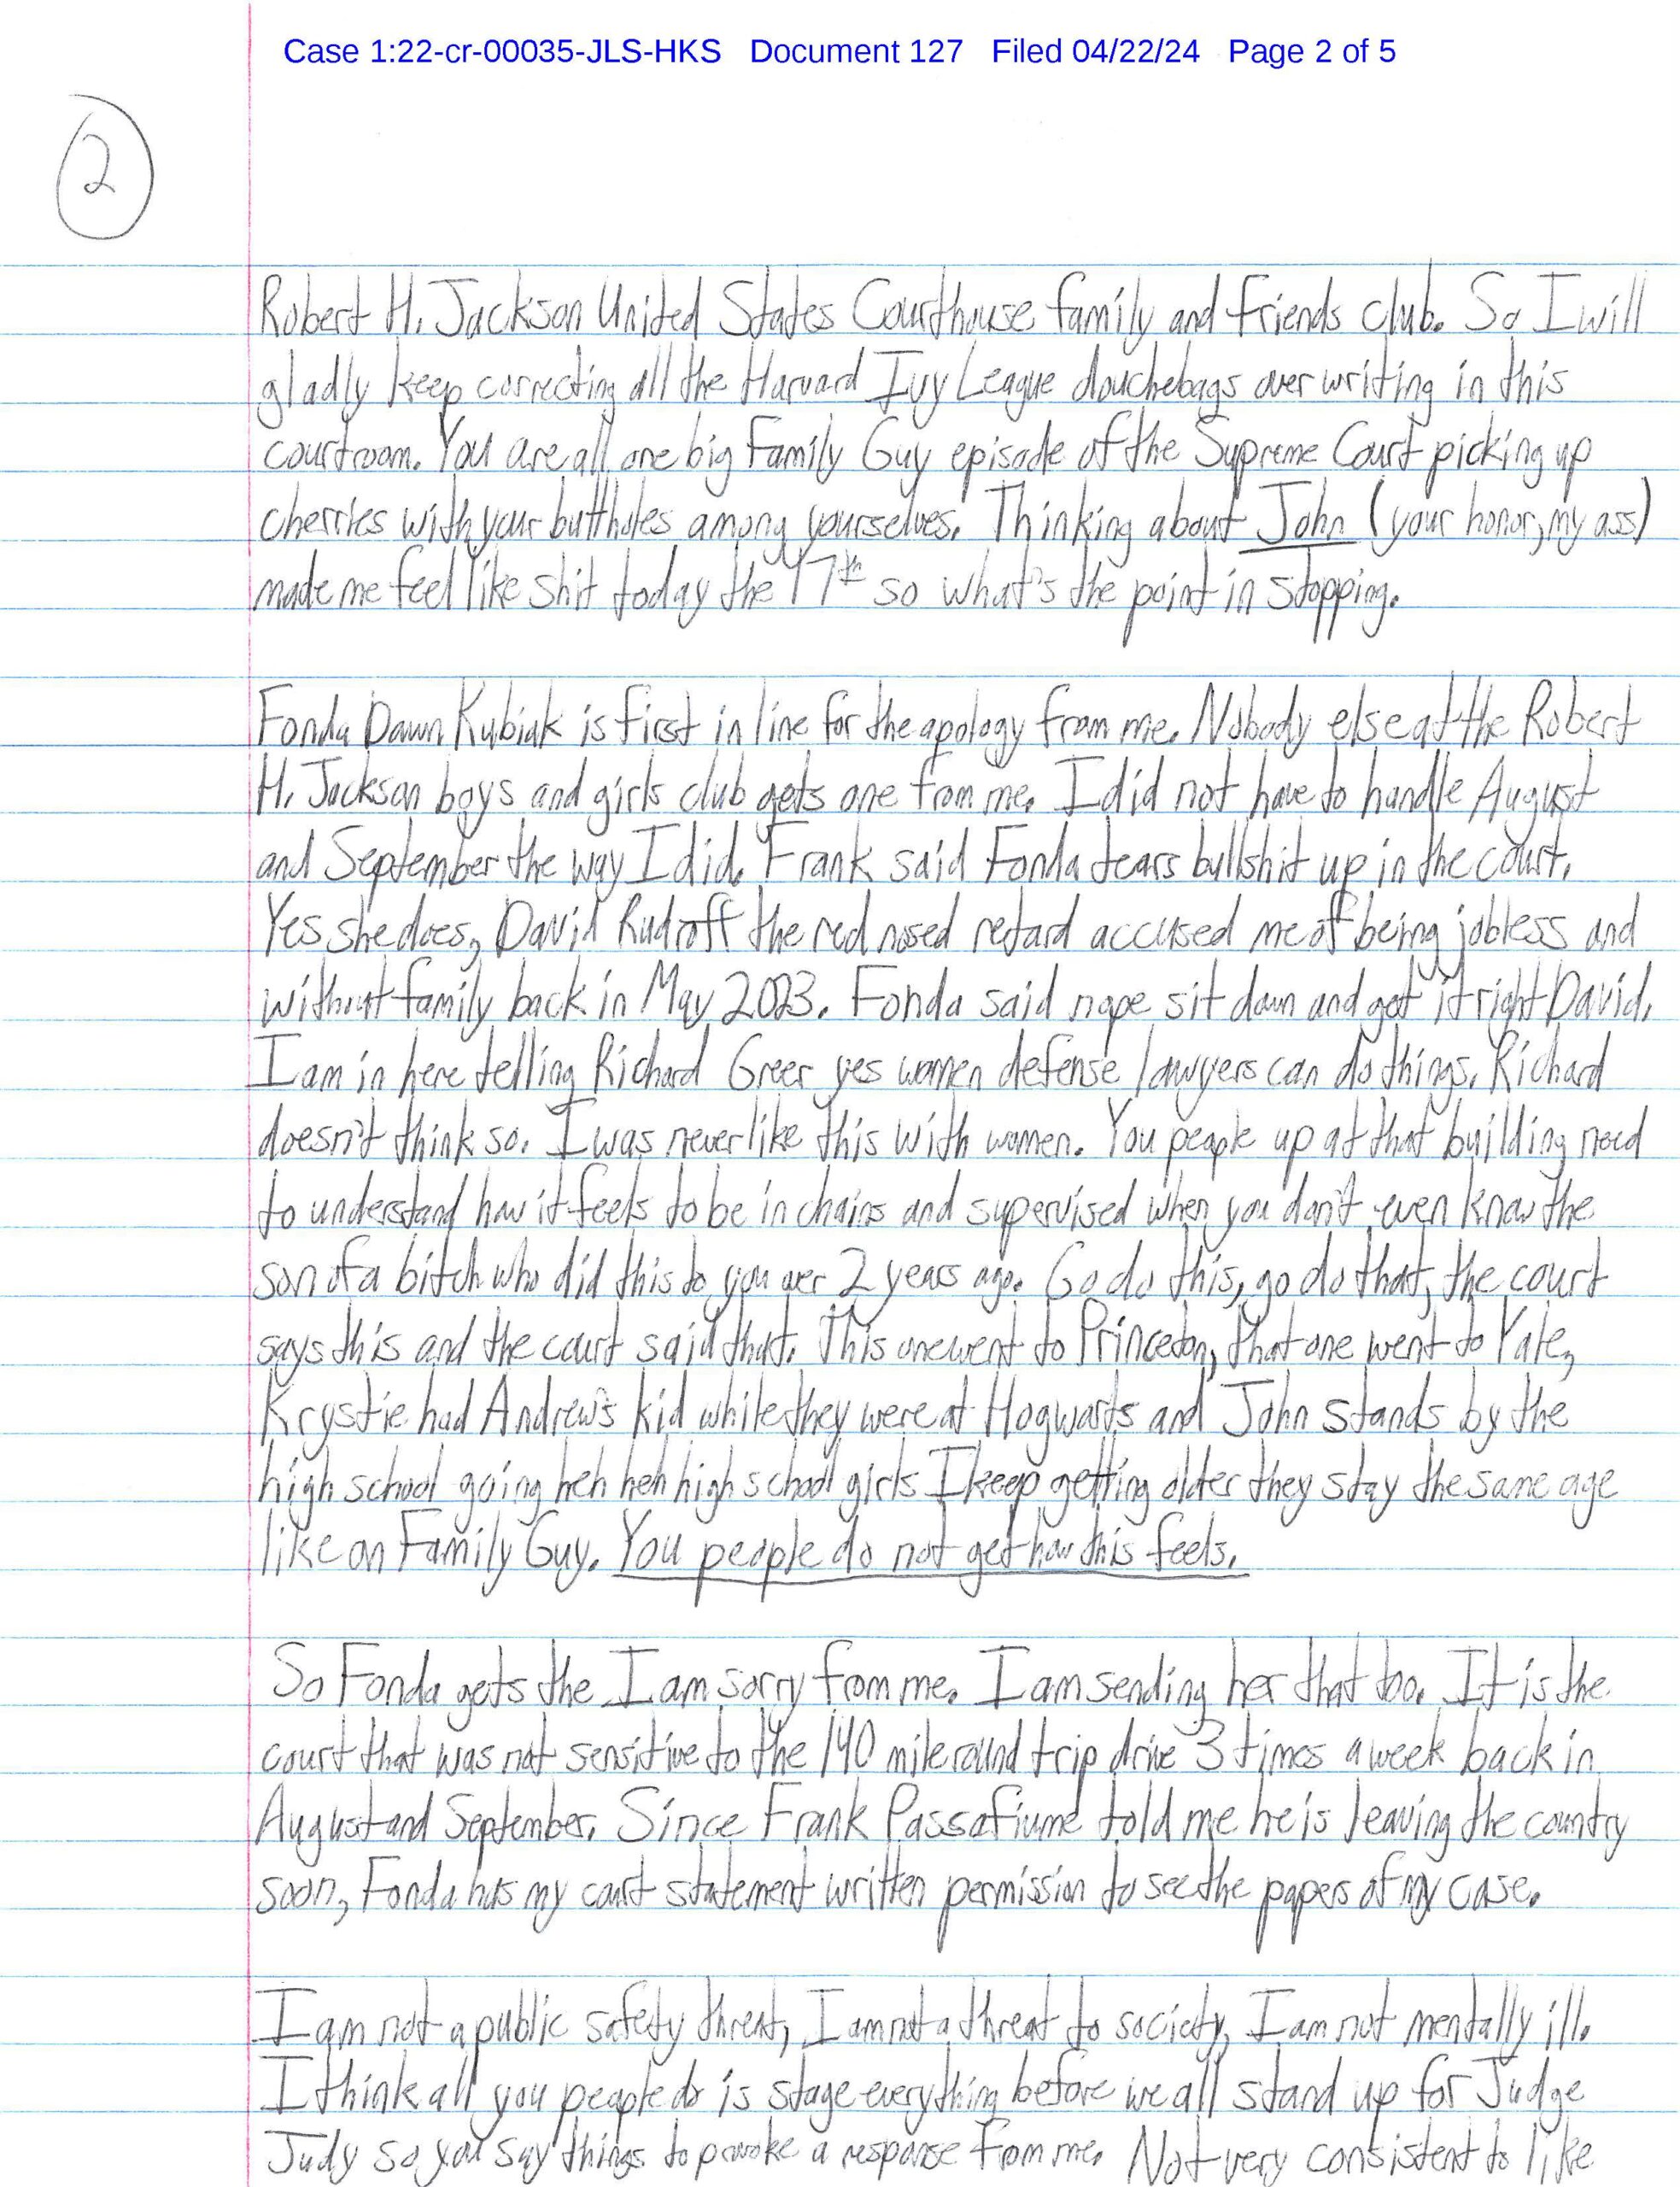 Case 1:22-cr-00035-JLS-HKS Document 127 Filed 04/22/24 Page 2 of 5
2
Robert H. Jackson United States Courthouse family and friends club. So I will
gladly keep correcting all the Harvard Ivy League douchebags over writing in this
courtroom. You are all one big Family Guy episode of the Supreme Court picking up
cherries with your buttholes among yourselves. Thinking about John (your honor, my ass)
made me feel like shit today the 17th so what's the point in stopping.
Fonda Dawn Kubiak is first in line for the apology from me. Nobody else at the Robert
H. Jackson boys and girls club gets one from me. I did not have to handle August
and September the way I did. Frank said Fonda tears bullshit up in the court.
Yes she does, David Rudroff the red nosed retard accused me of being jobless and
without family back in May 2023. Fonda said nope sit down and get it right David.
I am in here telling Richard Greer yes women defense lawyers can do things. Richard
doesn't think so. I was never like this with women. You people up at that building need
to understand how it feels to be in chains and supervised when you don't even know the
son of a bitch who did this to you over 2 years ago. Go do this, go do that, the court
says this and the court said that. This one went to Princeton, that one went to Yale,
Krystie had Andrew's kid while they were at Hogwarts and John stands by the
high school going heh heh high school girls I keep getting older they stay the same age
like on Family Guy. You people do not get how this feels.
So Fonda gets the I am sorry from me. I am sending her that too. It is the
court that was not sensitive to the 140 mile round trip drive 3 times a week back in
August and September. Since Frank Passafiume told me he is leaving the country
soon, Fonda has my court statement written permission to see the papers of my case.
I am not a public safety threat, I am not a threat to society, I am not mentally ill.
I think all you people do is stage everything before we all stand up for Judge
Judy so you say things to provoke a response from me. Not very consistent to like